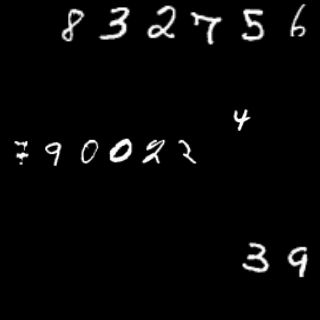 832756
4
790022
39